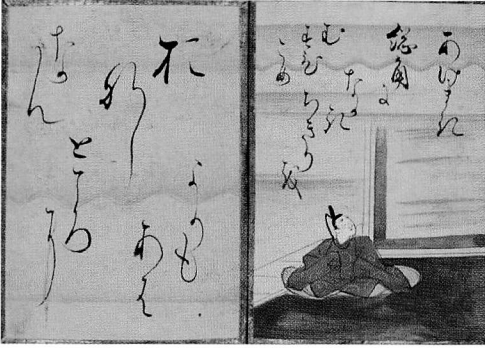 あけまき
総角に
なかき
ちきりを
む
すひ
こめ
おな
し
ところ
に
よりも
あは
なん